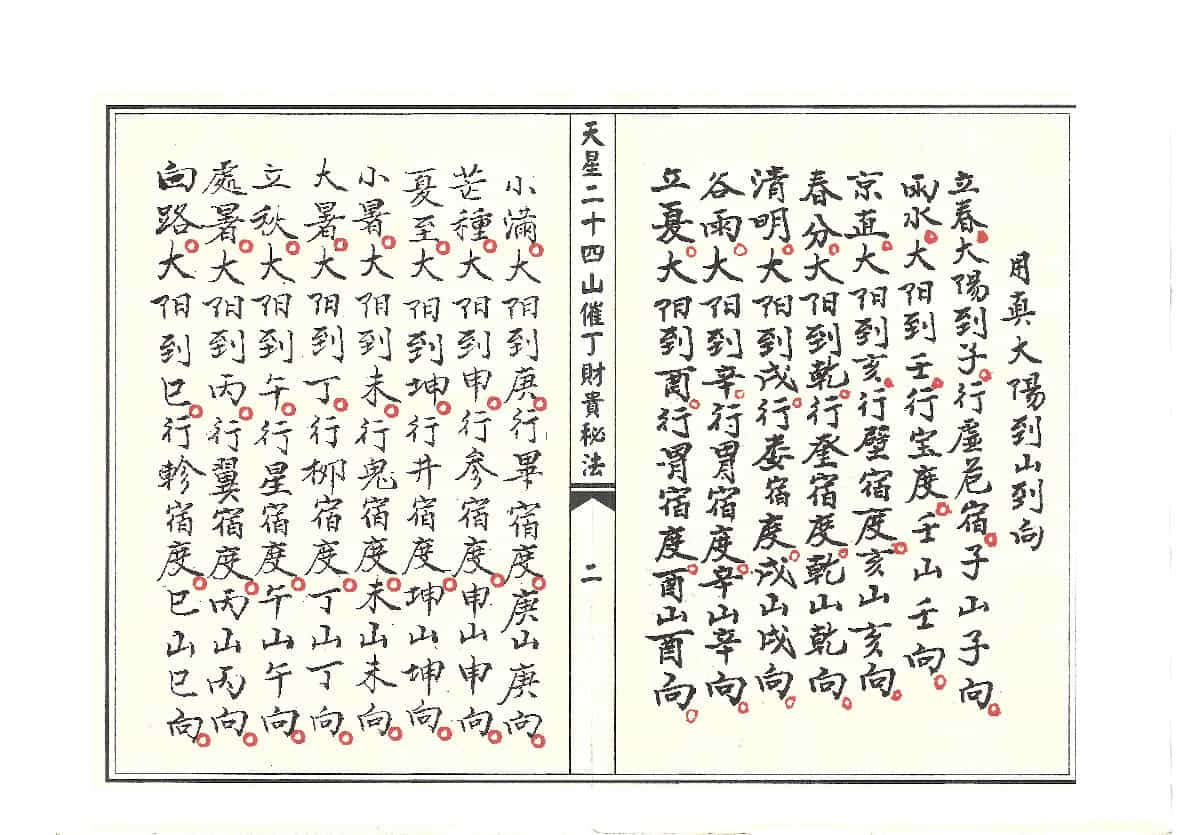 用真大陽到山到向
立春大陽到子行虛危宿子山子向
雨水大阳到壬行宝度壬山壬向
京直大阳到亥行壁宿度亥山亥向
春分大阳到乾行奎宿度乾山乾向
清明大阳到戌行娄宿度戌山戌向
谷雨大阳到辛行胃宿度辛山辛向
立夏大阳到酉行胃宿度酉山酉向
天星二十四山催丁財貴秘法
二
小滿大阳到庚行畢宿度庚山庚向
芒種大阳到申行參宿度申山申向
夏至大阳到坤行井宿度坤山坤向
小暑大阳到未行鬼宿度未山未向
大暑大阳到丁行柳宿度丁山丁向
立秋大阳到午行星宿度午山午向
處暑大阳到丙行翼宿度丙山丙向
白路大阳到巳行軫宿度巳山巳向